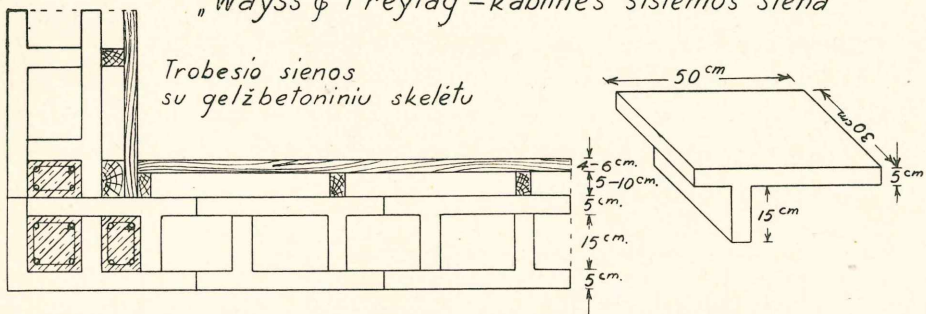 „Wayss & Freytag - kablinės sistemos siena
Trobesio sienos
su gelžbetoniniu skelėtu
4-6 cm.
5-10 cm.
5 cm.
15 cm.
5 cm.
50 cm
30 cm
5 cm
15 cm